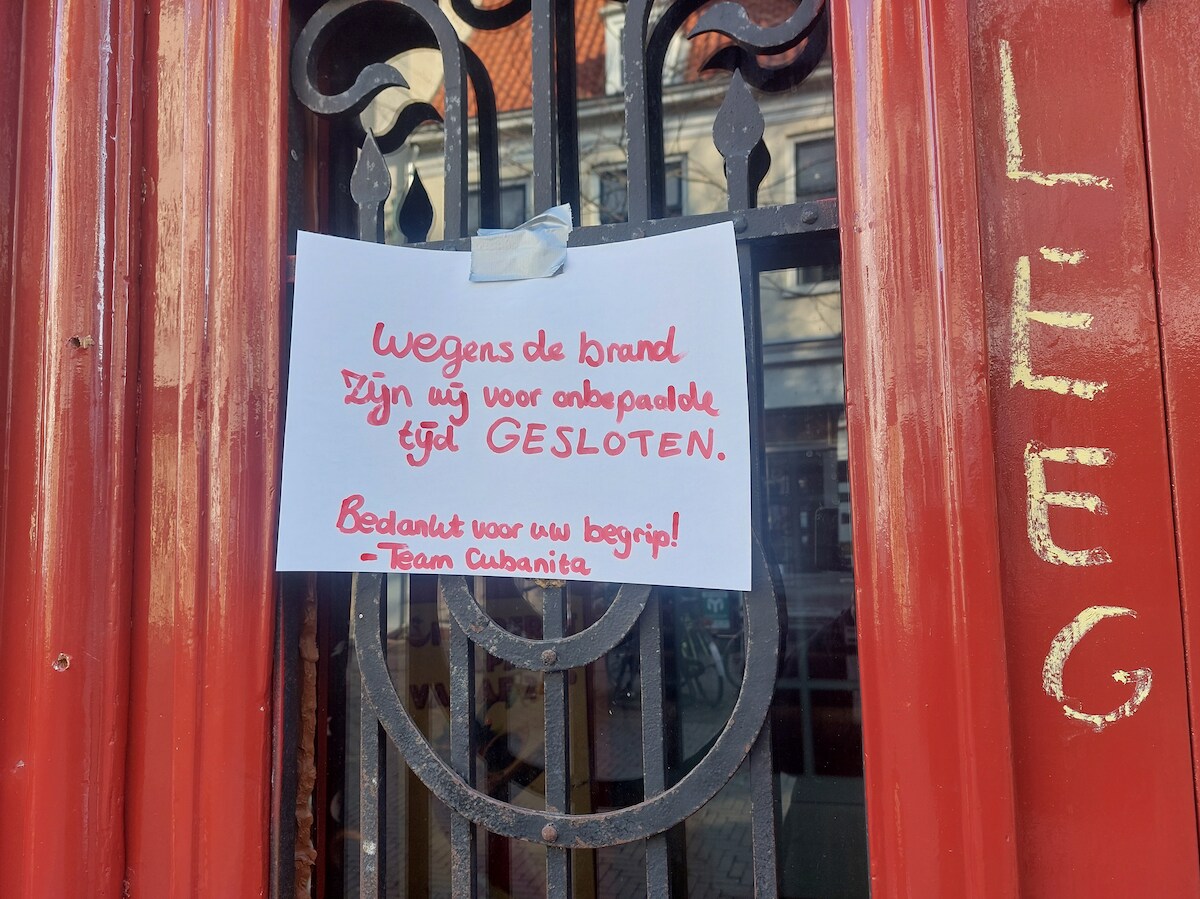 Wegens de brand
Zijn wij voor onbepaalde
tijd GESLOTEN.
Bedankt voor uw begrip!
-Team Cubanita
L
E
E
G